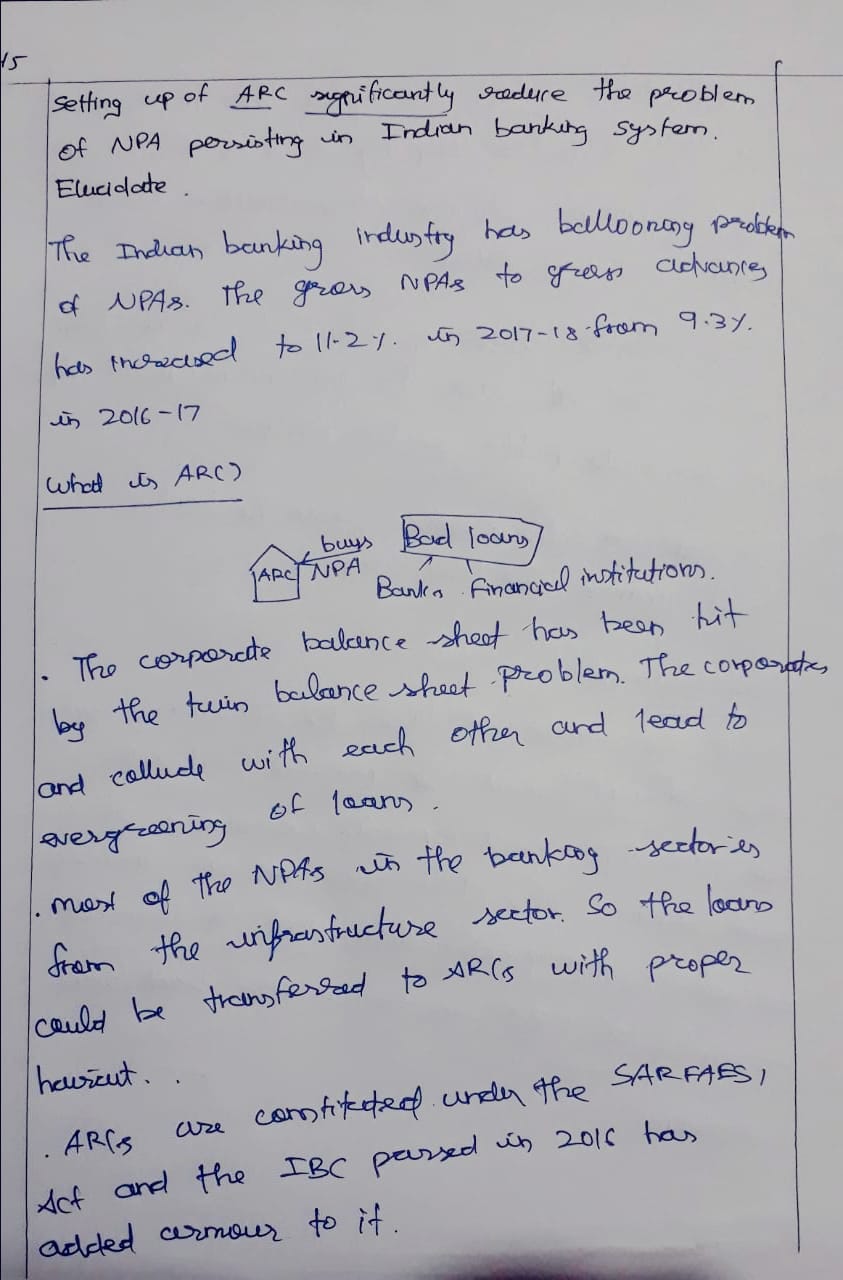 15
Setting up of ARC significantly reduce the problem
of NPA persisting in Indian banking system.
Elucidate.
The Indian banking industry has balloonong problem
of NPAs. The gross NPAs to gross advances
has increased to 11.2%. in 2017-18 from 9.3%.
in 2016-17
What is ARC?
buys Bad loans
ARC NPA
Banks Financial institutions.
. The corporate balance sheet has been hit
by the twin balance sheet problem. The corporates
and collude with each other and lead to
evergreening of loans.
. most of the NPAs in the banking sector is
from the infrastructure sector. So the loans
could be transferred to ARCs with proper
haircut..
. ARCs are constituted under the SARFAESI
Act and the IBC passed in 2016 has
added armour to it.